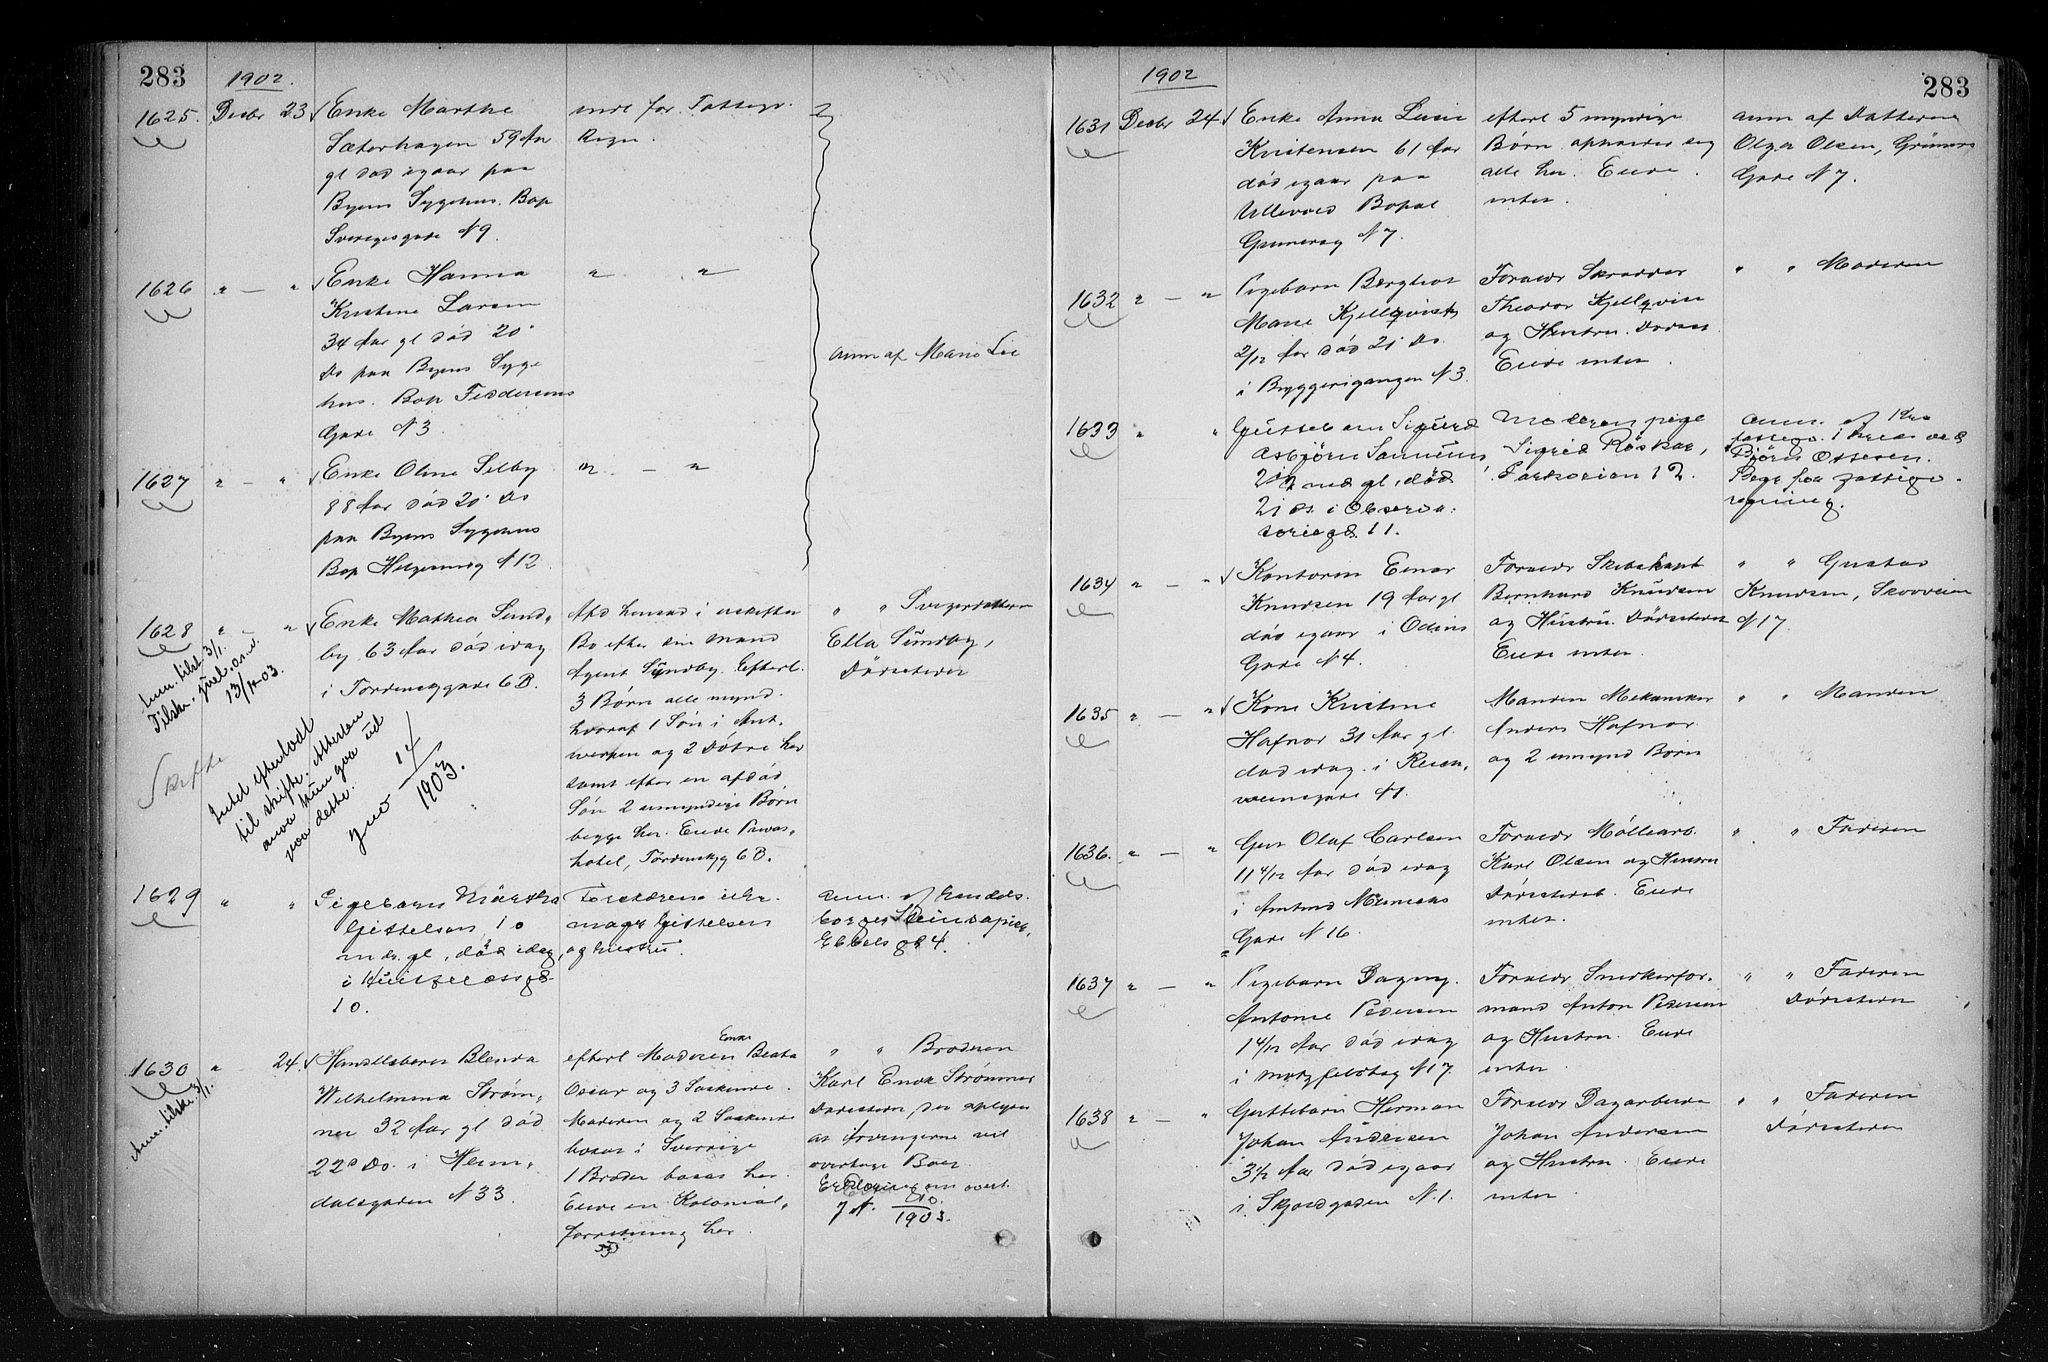 283
1902.
1625. Decbr 23 Enke Marthe
Sæterhagen 59 Aar
gl død igaar paa
Byens Sygehus. Bop
Sverigesgade N 9.
indt for Fattigv.
Regn.
1626 " — " Enke Hanna
Kristine Larsen
34 Aar gl død 20'
Ds paa Byens Syge
hus. Bop Feddersens
Gade N 3.
" "
anm af Marie Lie
1627 " — " Enke Oline Selby
88 Aar død 20' Ds
paa Byens Sygehus
Bop Helgesensg N 12
" — "
1628 " — " Enke Mathea Sund-
by 63 Aar død idag
i Tordenskgade 6 B.
Afd hensad i uskiftet
Bo efter sin Mand
Agent Sundby. Efterl.
3 Børn alle mynd.
hvoraf 1 Søn i Ant-
werpen og 2 Døtre her
samt efter en afdød
Søn 2 umyndige Børn
begge her. Eiede Privat-
hotel, Tordenskg 6 B.
" " Svigerdatteren
Ella Sundby,
Dødsattest
Anm. tilst. 3/1.
13/1-03.
Skifte
Intet efterladt
til skifte. Attesten
paa dette.
14/1903.
1629 " " Pigebarn Märtha
Gittelsen, 10
mdr. gl, død idag,
i Huitfeldtsgd
10.
Forældrene Uhr-
mager Gittelsen
og hustru.
anm. af handels-
borger Steinsapir,
Ebbels gd 4.
1630 " 24. Handelsborer Blenda
Wilhelmina Strøm-
ner 32 Aar gl død
22' Ds. i Heim-
dalsgaden N 33.
Enke
efterl Moderen Beata
Oscar og 3 Søskende.
Moderen og 2 Søskende
bosat i Sverrige
1 Broder bosat her.
Eiede en Kolonial-
forretning her
" " Broderen
Karl Enok Strømner
Dødsattest, der oplyser
at Arvingerne vil
overtage Boet
Erklæring om overt.
1903.
Anm. tilskr. 3/1.
283
1902
1631 Decbr 24 Enke Anna Lusie
Kristensen 61 Aar
død igaar paa
Ullevold Bopæl
Grunerag N 7.
efterl 5 myndige
Børn opholder sig
alle her. Eiede
intet.
anm af Datteren
Olga Olsen, Grüners
Gade N 7.
1632 " — " Pigebarn Bergliot
Marie Kjellqvist
2/12 Aar død 21' Ds.
i Bryggerigangen N 3.
Forældr Skrædder
Theodor Kjellqvist
og Hustru. Dødsat.
Eiede intet.
" " Moderen
1633 " " Guttebarn Sigurd
Asbjørn Sannum
2 1/2 md gl, død
21 ds. i Observa-
toriegd 11.
Moderen pige
Sigrid Röskar,
Parkveien 12.
anm. af Kra
fattigv. 1 kreds ved
Björn Ottesen.
Begr for fattigv.
regning.
1634 " — " Kontorm Einar
Knudsen 19 Aar gl
død igaar i Odins
Gade N 4.
Forældr Skibskapt
Bernhard Knudsen
og Hustru. Dødsattest
Eiede intet.
" " Gustav
Knudsen, Skovveien
N 17.
1635 " — " Kone Kristine
Hafnor 31 Aar gl.
død idag i Reien-
waldsgade N 1.
Manden Mekaniker
Anders Hafnor
og 2 umynd Børn
" " Manden
1636. " — " Gut Olaf Carlsen
11 4/12 Aar død idag
i Amtmd Meinichs
Gade N 16.
Forældr Møllearb.
Karl Olsen og Hustru
Dødsattest. Eiede
intet.
" " Faderen
1637 " — " Pigebarn Dagny
Antonie Pedersen
1 4/12 Aar død idag
i Motzfeldtsg N 17.
Forældr Snedkerfor-
mand Anton Pedersen
og Hustru. Eiede
intet.
" " Faderen
Dødsattest
1638 " — " Guttebarn Herman
Johan Andersen
3 1/2 Aar død igaar
i Skjoldgaden N. 1.
Forældr Dagarbeider
Johan Andersen
og Hustru. Eiede
intet.
" " Faderen
Dødsattest